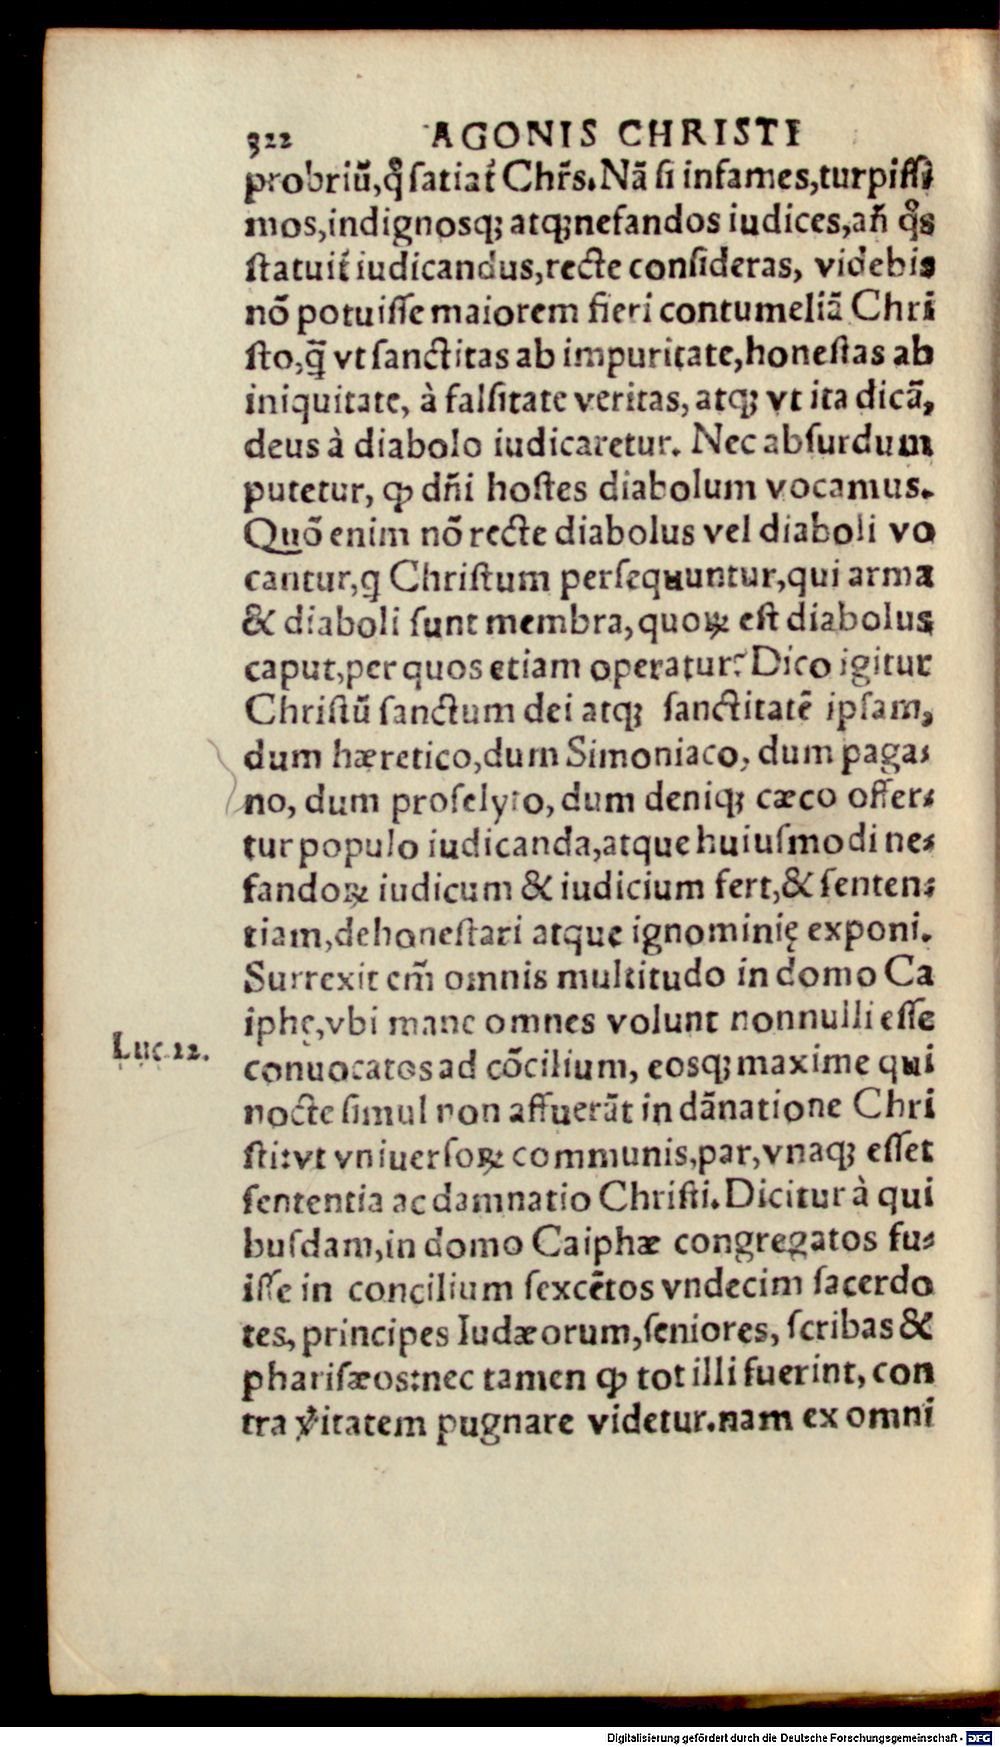 322 AGONIS CHRISTI
probriũ,q̊ ſatiat᷑ Chr̃s.Nã ſi infames,turpiſſi
mos,indignosq; atq;nefandos iudices,añ q̊s
ſtatuit᷑ iudicandus,recte conſideras, videbis
nõ potuiſſe maiorem fieri contumeliã Chri
ſto,q̃ vt ſanctitas ab impuritate,honeſtas ab
iniquitate, à falſitate veritas, atq; vt ita dicã,
deus à diabolo iudicaretur. Nec abſurdum
putetur, ꝙ dñi hoſtes diabolum vocamus.
Quõ enim nõ recte diabolus vel diaboli vo
cantur,ꝗ Chriſtum perſequuntur,qui arma
& diaboli ſunt membra,quoꝝ eſt diabolus
caput,per quos etiam operatur? Dico igitur
Chriſtũ ſanctum dei atq; ſanctitatẽ ipſam,
dum hæretico,dum Simoniaco, dum paga⸗
no, dum proſelyto, dum deniq; cæco offer⸗
tur populo iudicanda,atque huiuſmodi ne⸗
fandoꝝ iudicum & iudicium fert,& ſenten⸗
tiam,dehoneſtari atque ignominię exponi.
Surrexit em̃ omnis multitudo in domo Ca
iphę,vbi mane omnes volunt nonnulli eſſe
Luc.22.
conuocatos ad cõcilium, eosq; maxime qui
nocte ſimul non affuerãt in dãnatione Chri
ſti:vt vniuerſoꝝ communis,par,vnaq; eſſet
ſententia ac damnatio Chriſti.Dicitur à qui
buſdam,in domo Caiphæ congregatos fu⸗
iſſe in concilium ſexcẽtos vndecim ſacerdo
tes, principes Iudæorum,ſeniores, ſcribas &
phariſæos:nec tamen ꝙ tot illi fuerint, con
tra v̾itatem pugnare videtur.nam ex omni
Digitalisierung gefördert durch die Deutsche Forschungsgemeinschaft - DFG